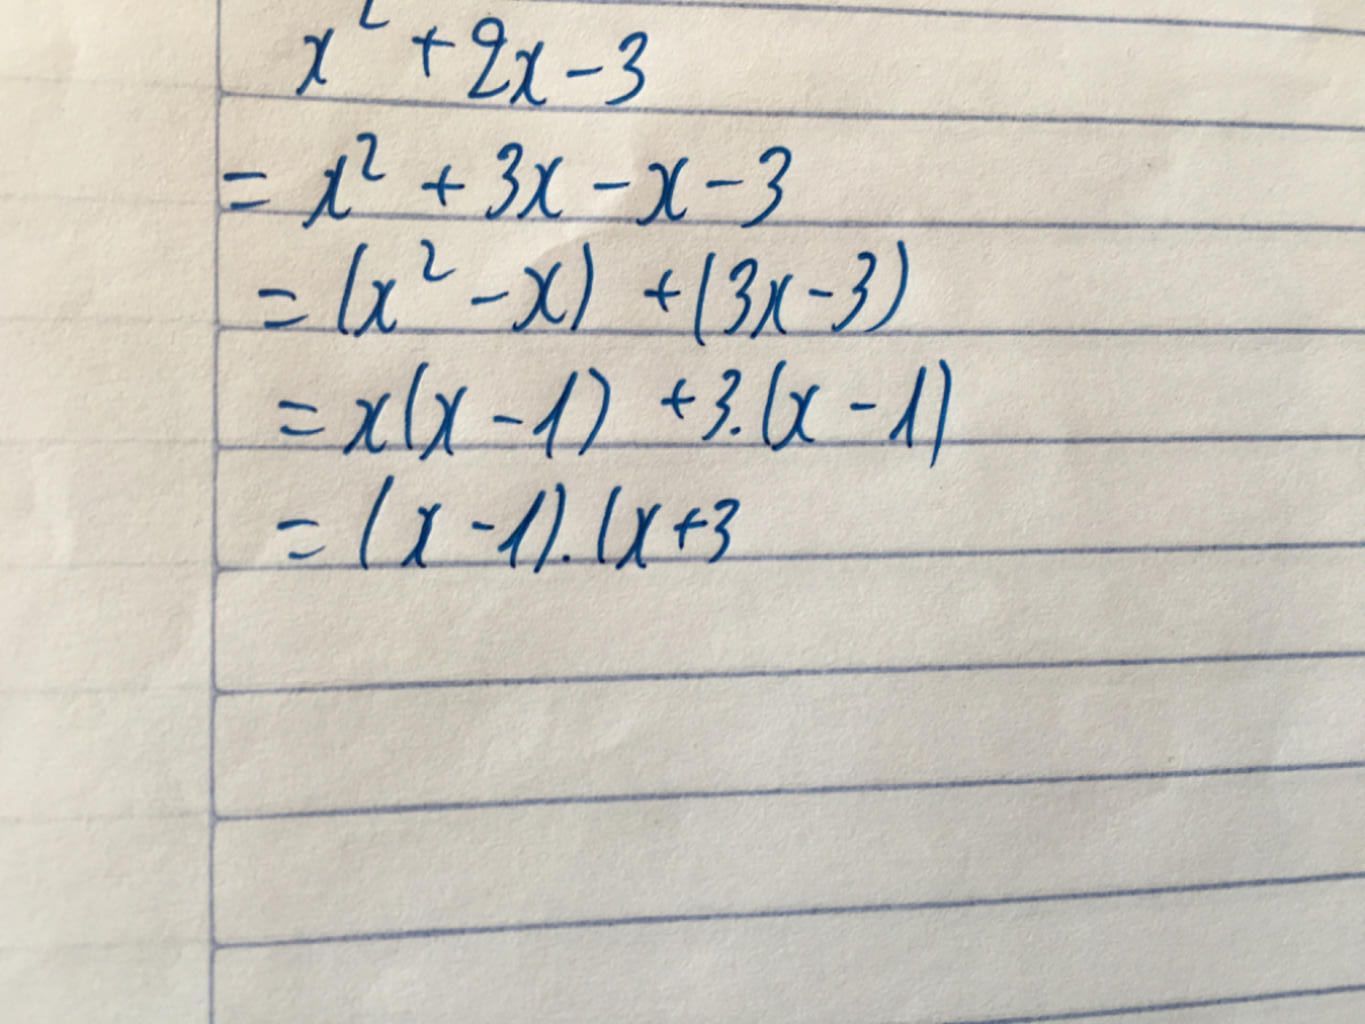 x² + 2x - 3
= x² + 3x - x - 3
= (x² - x) + (3x - 3)
= x(x - 1) + 3.(x - 1)
= (x - 1).(x + 3